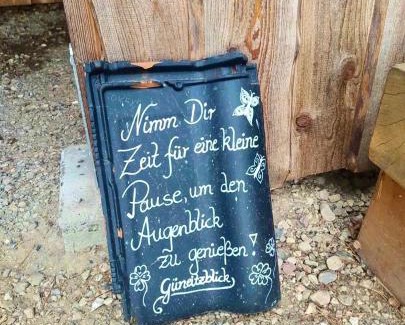 Nimm Dir
Zeit für eine kleine
Pause, um den
Augenblick
zu genießen!
Günitzblick